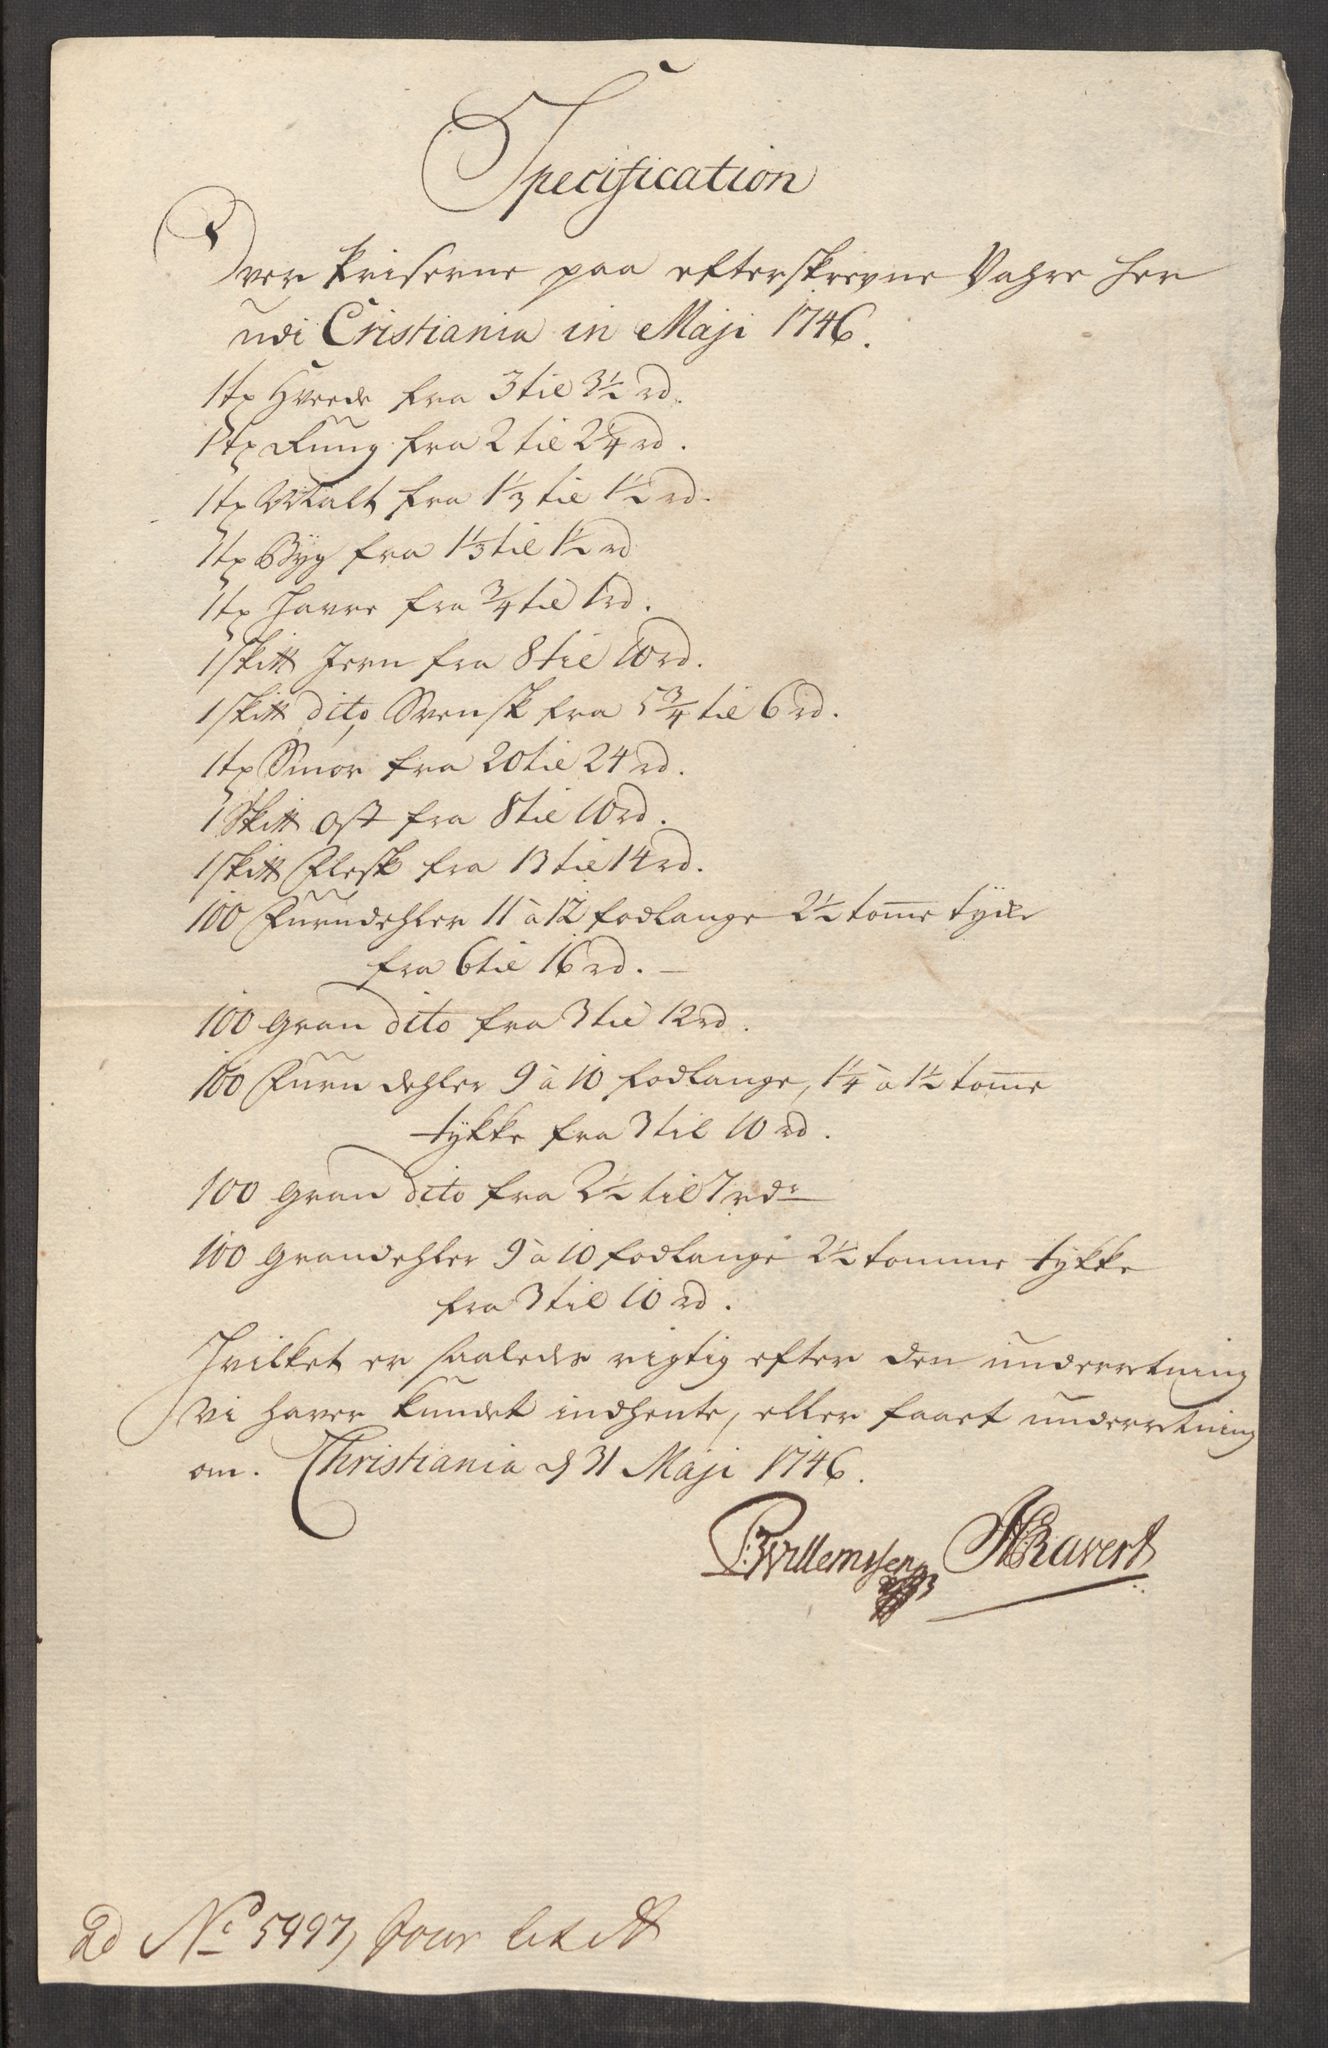 Specification
Over Priserne paa efterskrevne Vahre her
udi Cristiania in Maji 1746.
1 tr Hvede fra 3 til 3½ rd.
1 tr Rung fra 2 til 2¼ rd.
1 tr Malt fra 1⅓ til 1½ rd.
1 tr Byg fra 1⅓ til 1½ rd
1 tr Havre fra ¾ til 1 rd.
1 skitt Jern fra 8 til 10 rd.
1 skitt dito, Svensk fra 5¾ til 6 rd.
1 tr Smør fra 20 til 24 rd.
1 Skitt Ost fra 8 til 10 rd.
1 skitt Flesk fra 13 til 14 rd.
100 Furudehler 11 à 12 fodlange 2½ tome tycke
fra 6 til 16 rd. —
100 Gran dito fra 3 til 12 rd.
100 Furu dehler 9 à 10 fodlange, 1¼ à 1½ tome
tykke fra 3 til 10 rd.
100 Gran dito fra 2½ til 7 rdr
100 Grandehler 9 à 10 fodlange 2½ tomme tykke
fra 3 til 10 rd.
Hvilket er saaledes rigtig efter den underretning
vi haver kundet indhente, eller faaet underretning
om. Christiania d 31 Maji 1746.
PWillemsen HRavert
No 5997